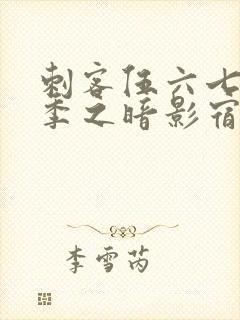 刺客伍六七
季之暗影宿
李雪芮